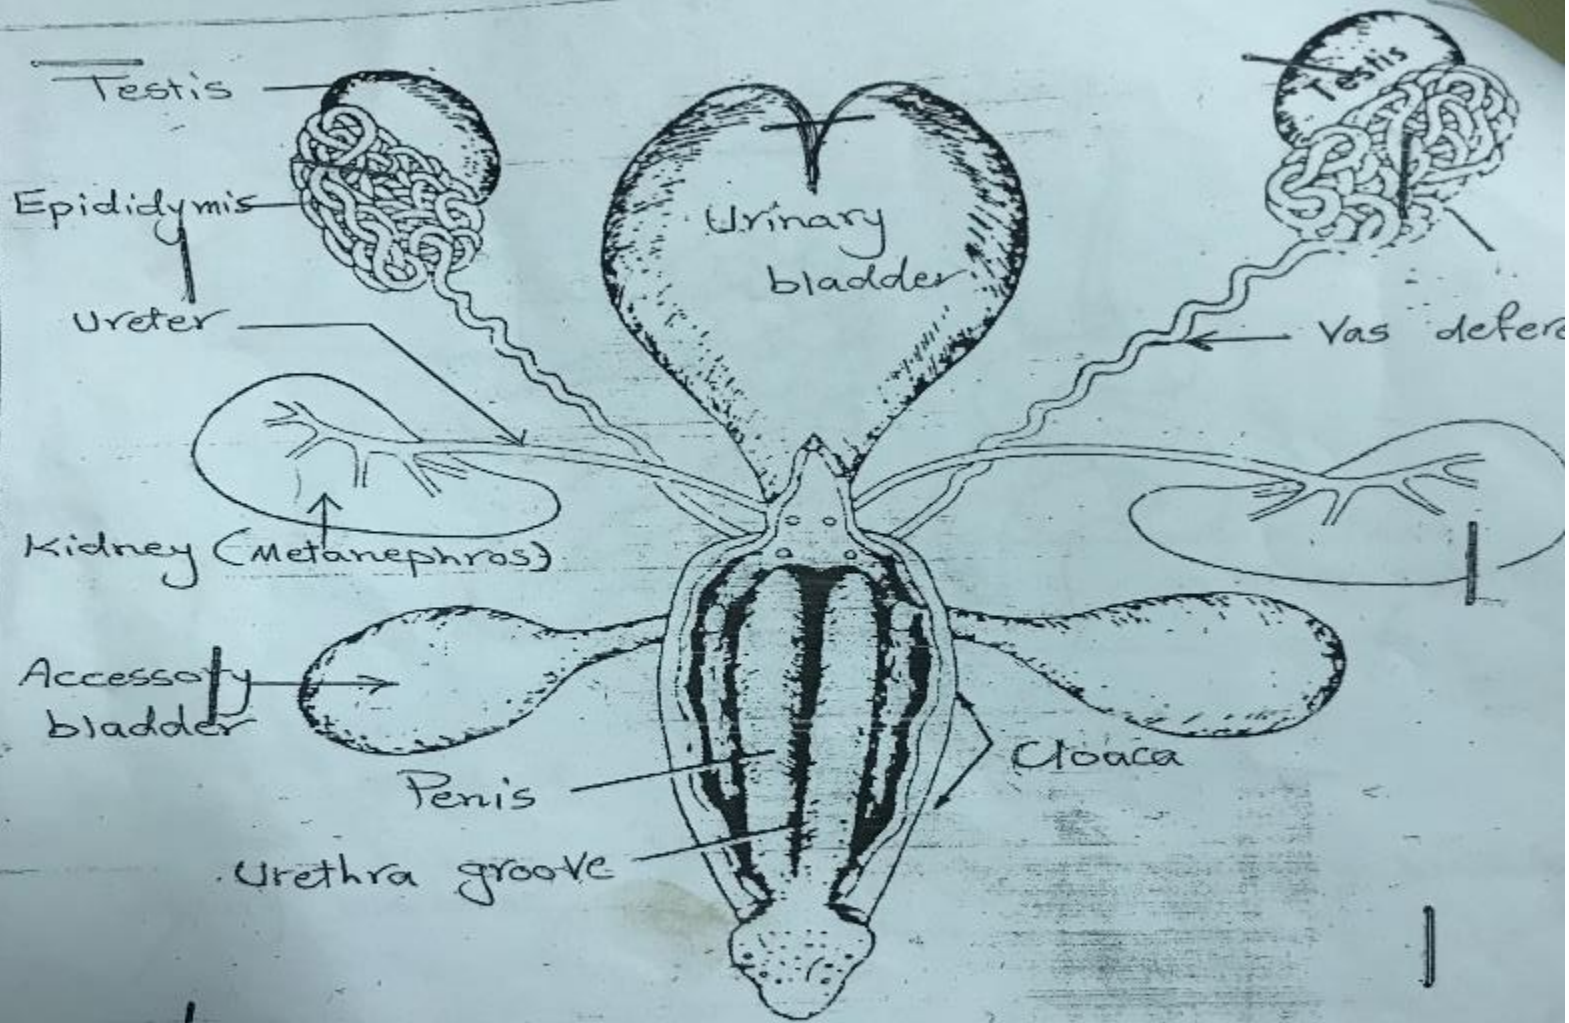 Testis
Testis
Epididymis
Urinary
bladder
Ureter
Vas defere
Kidney (Metanephros)
Accessory
bladder
Cloaca
Penis
Urethra groove